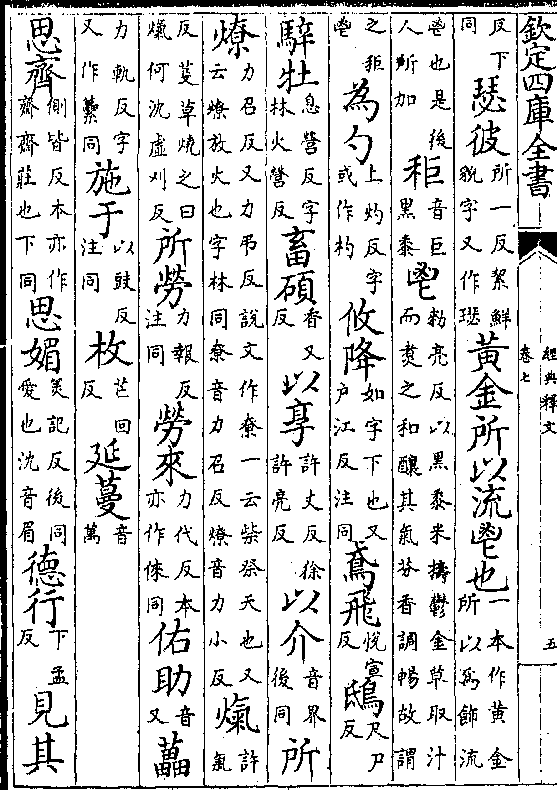 欽定四庫全書
經典釋文
卷七
五
反下同瑟彼所一反絜鮮貌字又作璱黃金所以流鬯也一本作黃金所以爲飾流
鬯也是後人所加秬音巨黑黍鬯勑亮反以黑黍米擣鬱金草取汁而煑之和釀其氣芬香調暢故謂
之秬鬯為勺上灼反字或作杓攸降如字下也又户江反注同鳶飛悅宣反鴟尺尸反
騂牡息營反字林火營反畜碩香又反以享許丈反徐許亮反以介音界後同所
燎力召反又力弔反說文作尞一云祡祭天也又云燎放火也字林同尞音力召反燎音力小反熂許氣
反芟草燒之曰熂何沈虛刈反所勞力報反注同勞來力代反本亦作倈同佑助音又藟
力軌反字又作虆同施于以豉反注同枚芒回反延蔓音萬
思齊側皆反本亦作齋齋莊也下同思媚美記反後同愛也沈音眉德行下孟反見其